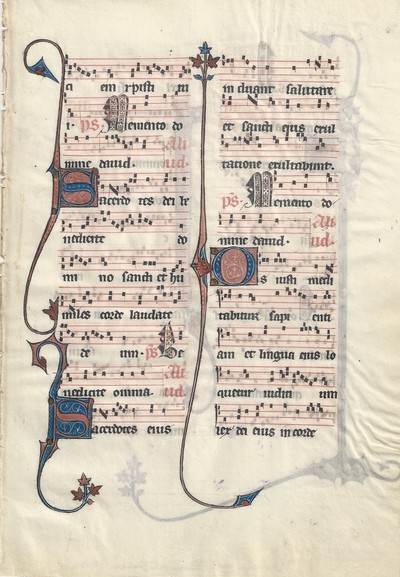 ci em xpisti tu
i. ps. Memento do
mine dauid. Aliud.
Sacerdotes dei be
nedicite do
mi no sancti et hu
miles corde laudate
de um. ps. Be
nedicite omnia. Aliud.
Sacerdotes eius
in duant salutare
et sancti eius exul
tatione exultabunt.
ps. Memento do
mine dauid. Aliud.
Os iusti medi
tabitur sapi enti
am et lingua eius lo
quetur iudici um
lex dei eius in corde